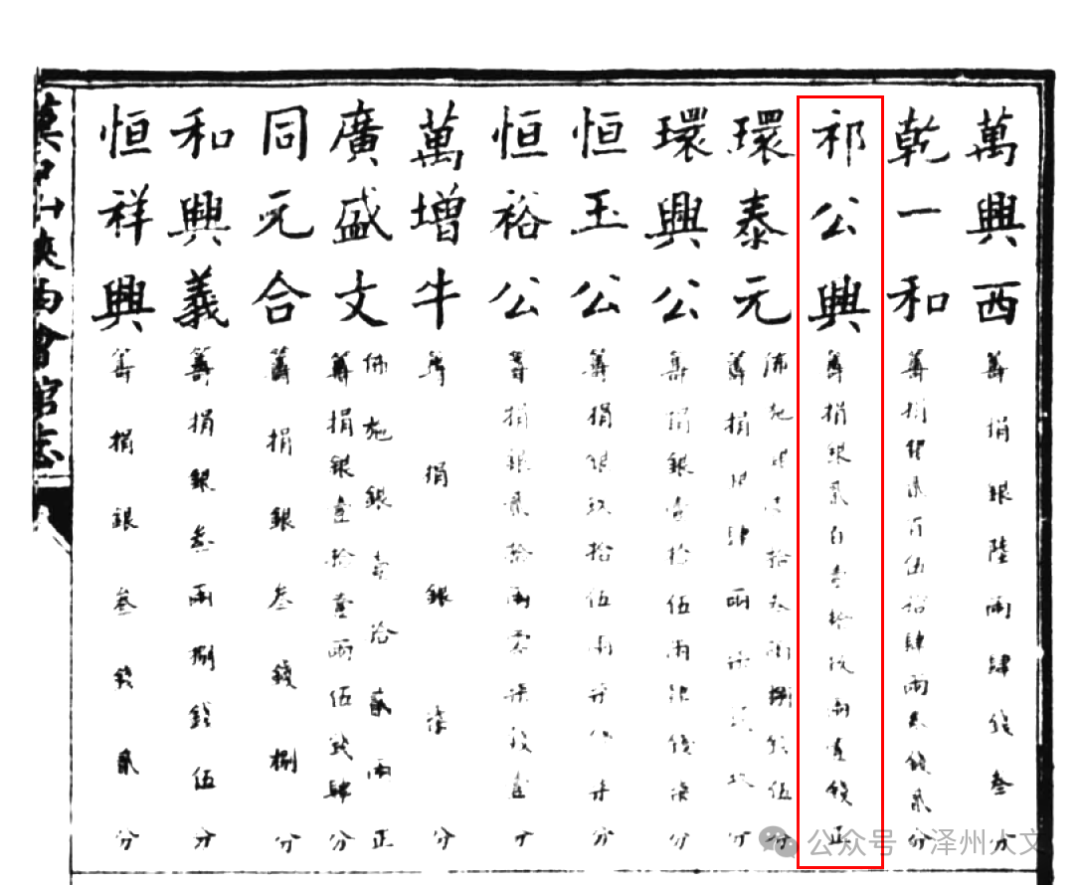 萬興西 籌捐銀陸兩肆錢叁分
乾一和 籌捐銀貳百伍拾肆兩錢貳分
祁公興 籌捐銀貳百壹拾玖兩壹錢正
環泰元 布施拾兩捌錢伍分
籌捐銀肆兩分
環興公 籌捐銀壹拾伍兩肆錢柒分
恒玉公 籌捐銀玖拾伍兩分
恒裕公 籌捐銀貳拾兩零柒錢壹分
萬增牛 籌捐銀柒分
廣盛文 佈施銀壹拾貳兩正
籌捐銀壹拾壹兩伍錢肆分
同元合 籌捐銀叁錢捌分
和興義 籌捐銀叁兩捌錢伍分
恒祥興 籌捐銀叁錢貳分
漢口山陝西會館志
公众号·泽州人文